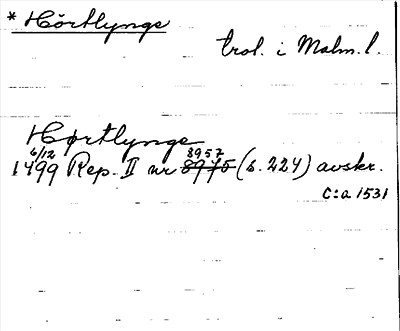 * Hörtlynge
trol. i Malm. l.
Hørtlynge
6/12 8957
1499 Rep. II nr 8975 (s. 224) avskr.
C:a 1531